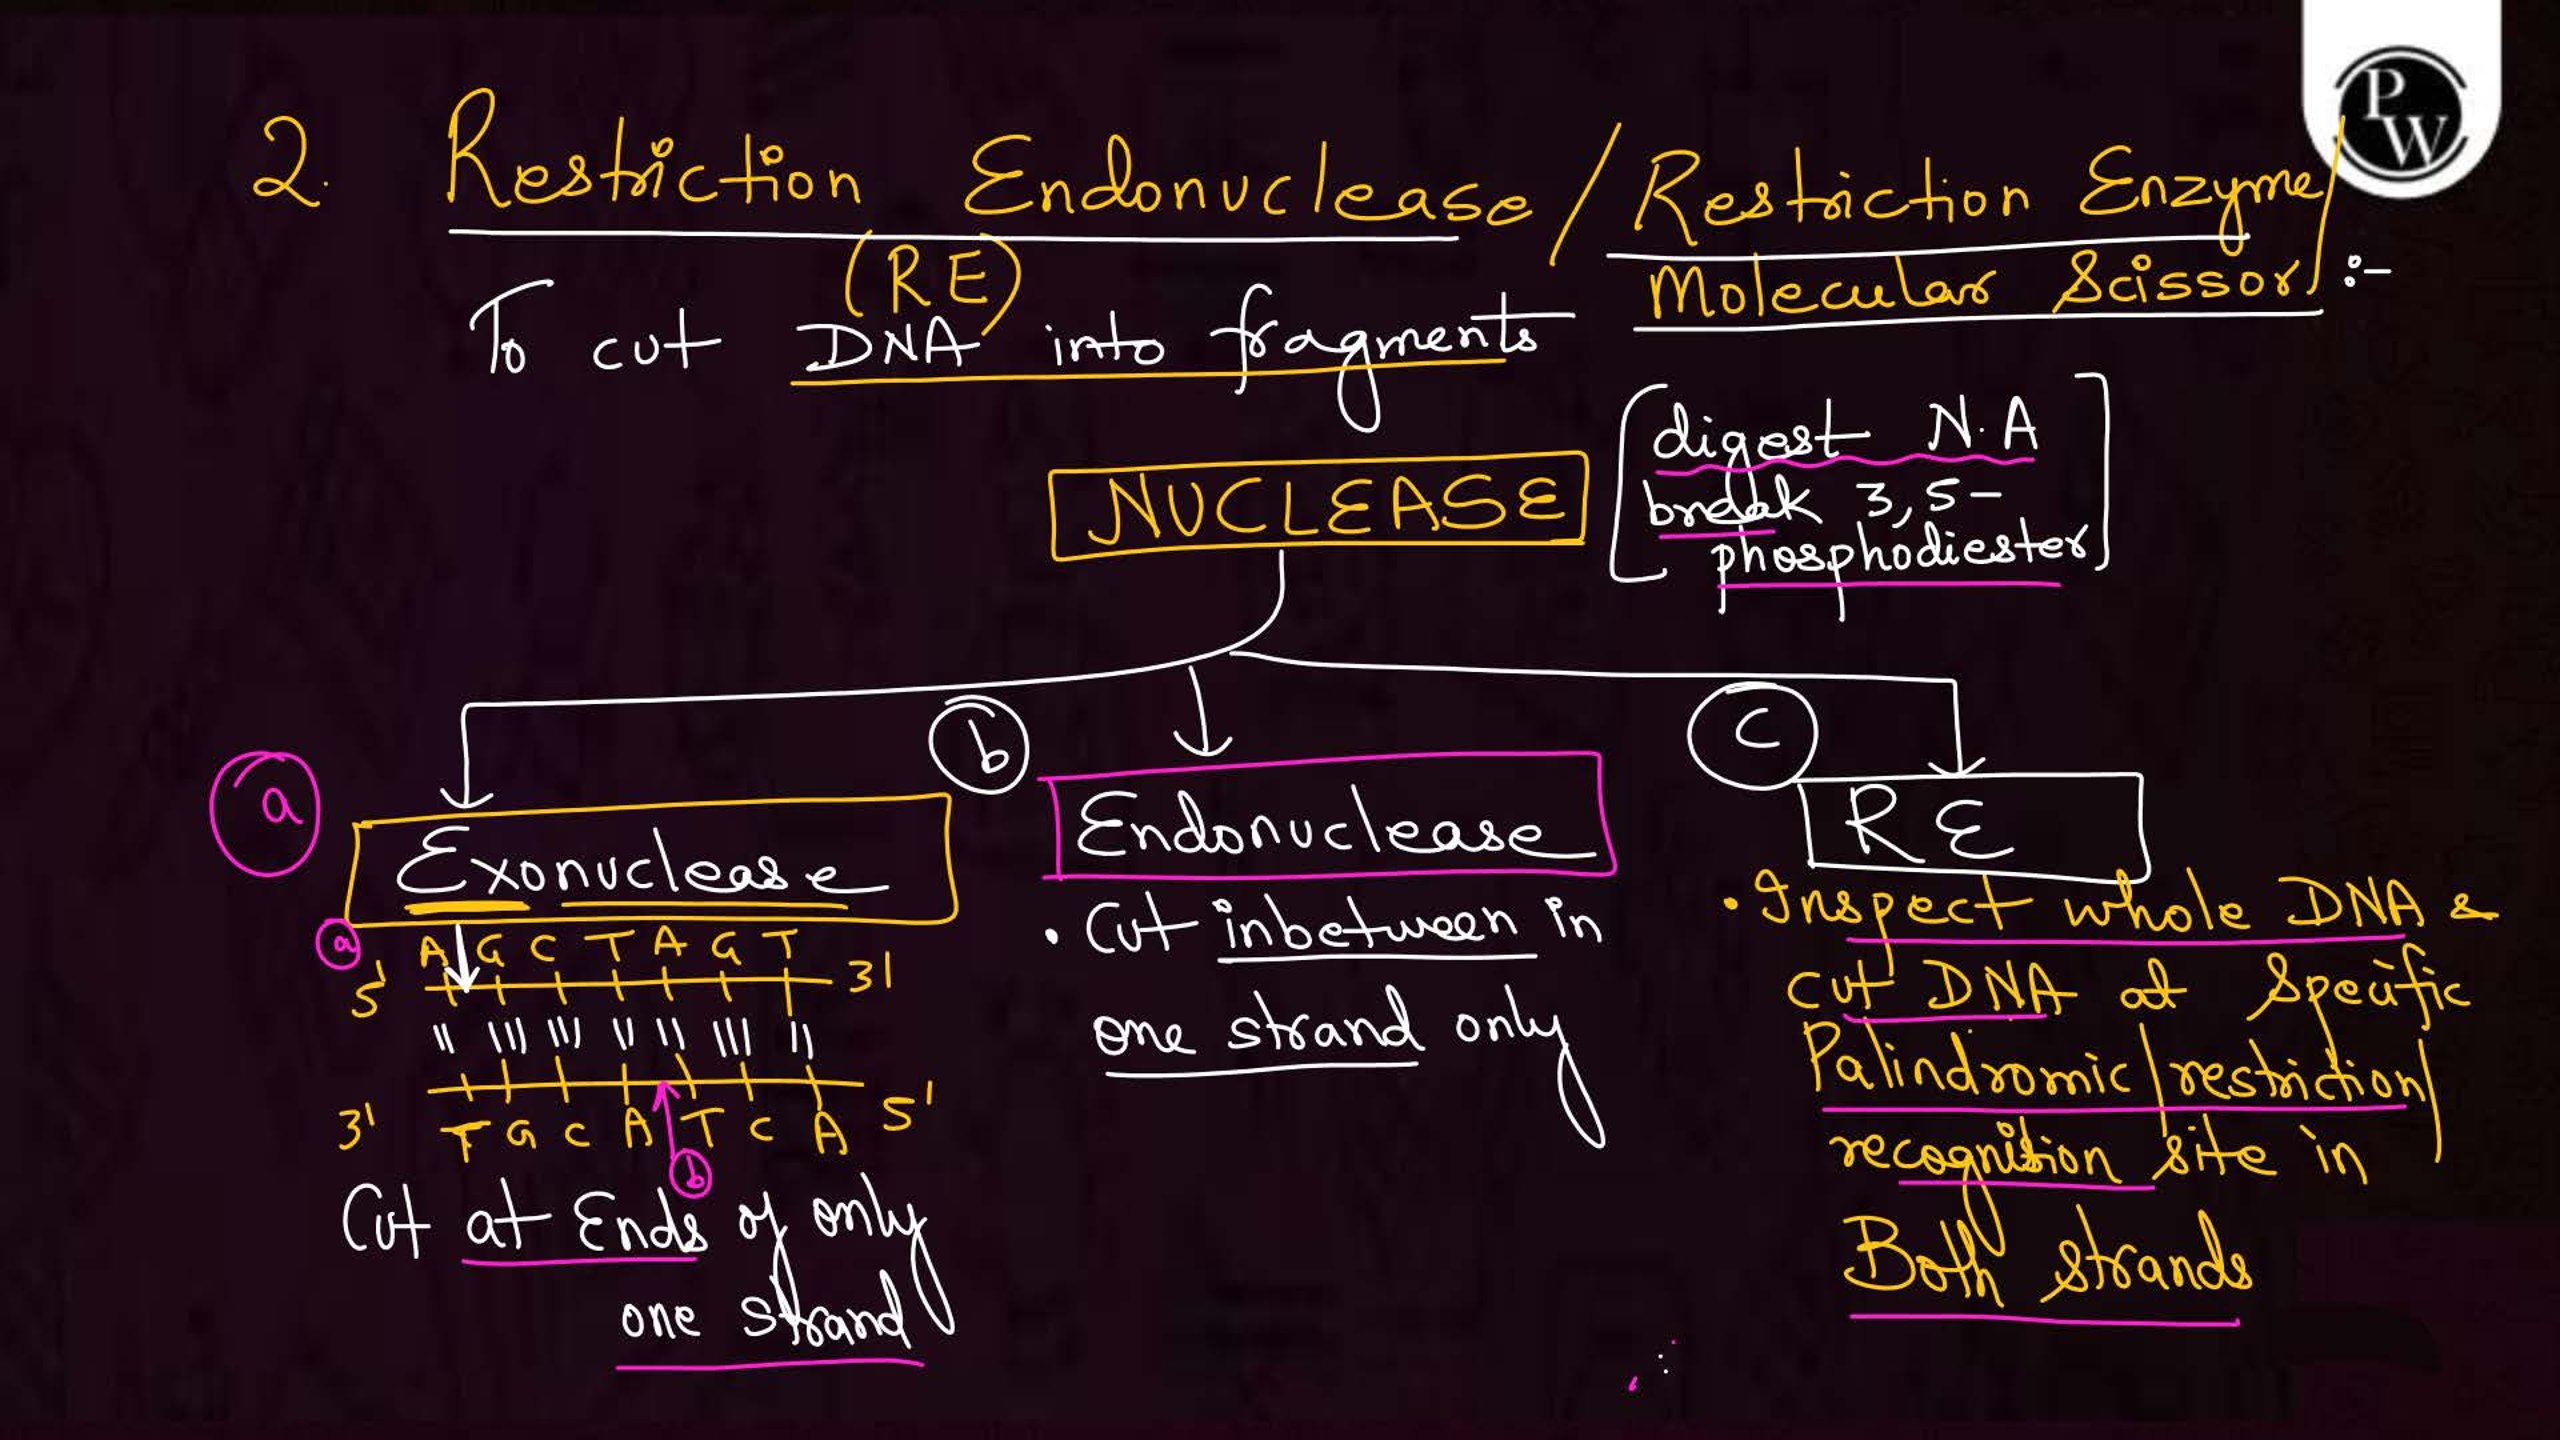 PW
2. Restriction Endonuclease / Restriction Enzyme /
(RE)
Molecular Scissor :-
To cut DNA into fragments
NUCLEASE
[digest N.A
break 3,5-
phosphodiester]
a
b
c
Exonuclease
Endonuclease
RE
a
A G C T A G T
5' 3'
3' 5'
T G C A T C A
b
Cut at Ends of only
one strand
• Cut inbetween in
one strand only
• Inspect whole DNA &
cut DNA at specific
Palindromic/restriction/
recognition site in
Both strands